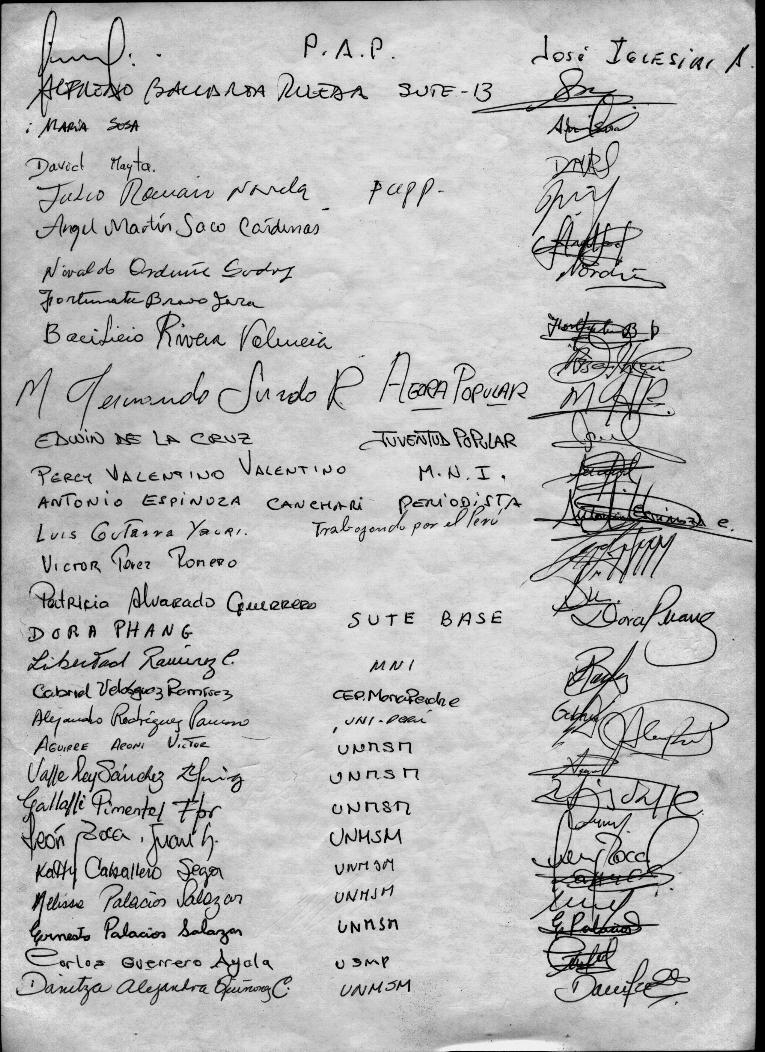 P.A.P. José Iglesias A.
ALFREDO BALLARTA RUEDA SUTE-13
MARIA SOSA
David Mayta.
DMRS
Julio Roman PUPP-
Angel Martín Saco Cárdenas
Nivaldo Orduñe Godoy
Fortunata Bravo Jara
Bacilicio Rivera Valencia
M Fernando Surdo R AGORA POPULAR
EDWIN DE LA CRUZ JUVENTUD POPULAR
PERCY VALENTINO VALENTINO M.N.I.
ANTONIO ESPINOZA CANCHARI PERIODISTA Antonio Espinoza C.
LUIS Gutarra Yauri. Trabajando por el Perú
VICTOR Perez Romero
Patricia Alvarado GUERRERO
DORA PHANG SUTE BASE Dora Phang
Libertad Ramirez C. MNI
Gabriel Velásquez Ramírez CEP. Maria Reiche
Alejandro Rodriguez UNI-PERÚ
AGUIRRE ARONI VICTOR UNMSM
Valle Rey Sánchez UNMSM
Gallalli Pimentel Flor UNMSM
León Roca, Juan h. UNMSM
Katty Caballero Sega UNMSM
Melissa Palacios Salazar UNMSM
Ernesto Palacios Salazar UNMSM E. Palacios
Carlos Guerrero Ayala USMP
Danitza Alejandra Quiñonez C. UNMSM